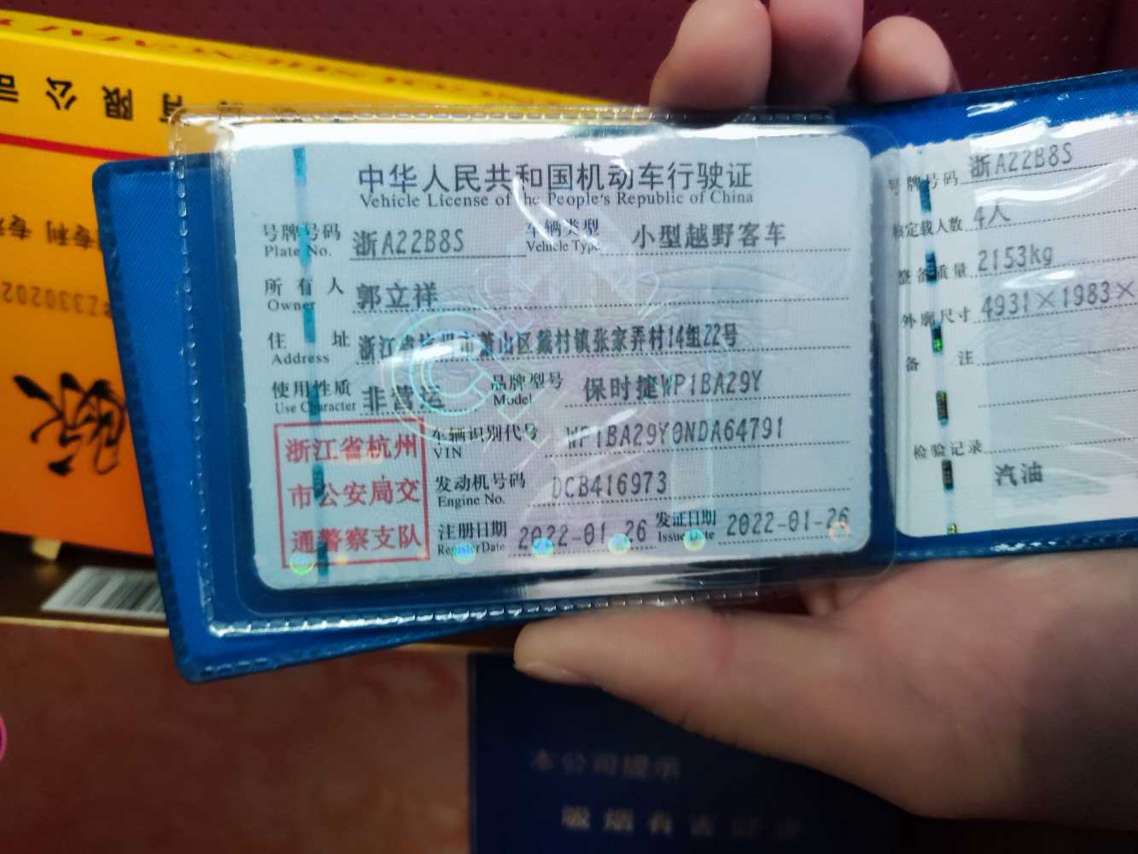 有限公司
专利
中华人民共和国机动车行驶证
Vehicle License of the People's Republic of China
号牌号码 浙A22B8S 车辆类型 小型越野客车
Plate No. Vehicle Type
所有人 郭立祥
Owner
住址 浙江省杭州市萧山区戴村镇张家弄村14组22号
Address
使用性质 非营运 品牌型号 保时捷WP1BA29Y
Use Character Model
浙江省杭州
市公安局交
通警察支队
车辆识别代号 WP1BA29Y0NDA64791
VIN
发动机号码 DCB416973
Engine No.
注册日期 2022-01-26 发证日期 2022-01-26
Register Date Issue Date
号牌号码 浙A22B8S
核定载人数 4人
整备质量 2153kg
外廓尺寸 4931×1983×
备注
检验记录
汽油
本公司提示